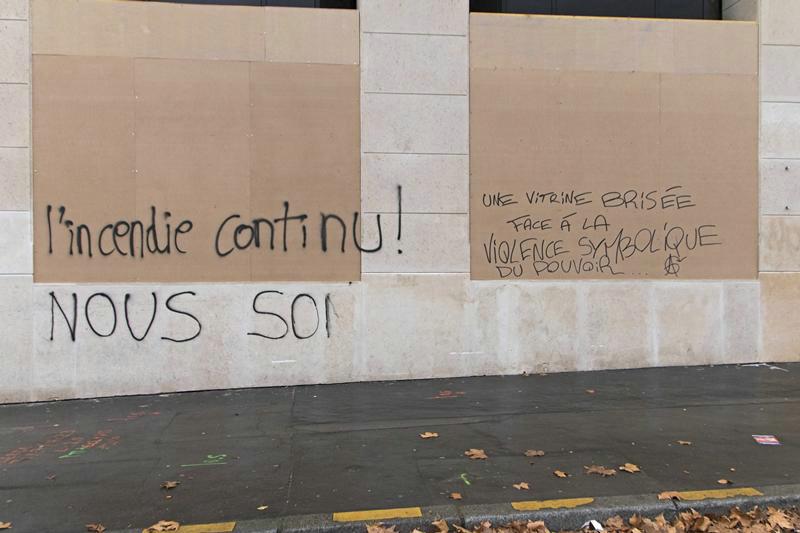 l'incendie continu!
NOUS SOI
UNE VITRINE BRISÉE
FACE À LA
VIOLENCE SYMBOLIQUE
DU POUVOIR...